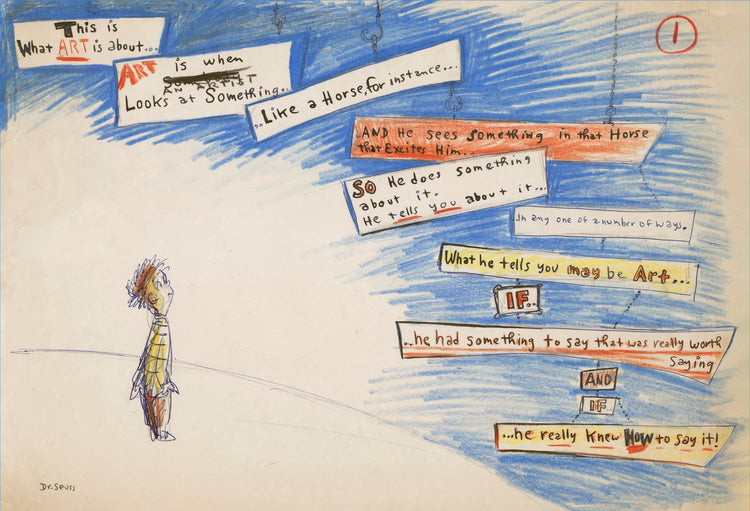 This is
What ART is about...
1
ART is when
AN ARTIST
Looks at Something..
..Like a Horse, for instance...
AND He sees something in that Horse
that Excites Him...
SO He does something
about it.
He tells you about it...
..In any one of a number of ways.
What he tells you may be Art...
IF..
..he had something to say that was really worth
saying
AND
IF..
...he really knew HOW to say it!
Dr. Seuss